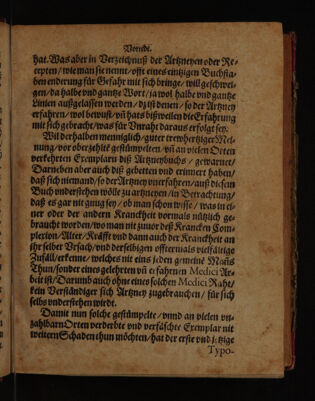 Vorredt.
hat. Was aber in Verzeichnuß der Artzneyen oder Re-
cepten/ wie man sie nennt/ offt eines eintzigen Buchsta-
ben enderung für Gefahr mit sich bringe/ will geschwei-
gen/ da halbe vnd gantze Wort/ ja wol halbe vnd gantze
Linien außgelassen werden/ dz ist denen/ so der Artzney
erfahren/ wol bewust/ vñ hats bißweilen die Erfahrung
mit sich gebracht/ was für Vnraht daraus erfolgt sey.
Wil derhalben menniglich/ guter trewhertziger Mei-
nung/ vor oberzehlte gestümpelten/ vñ an vielen Orten
verkehrten Exemplarn diß Artzneybuchs/ gewarnet/
Darneben aber auch diß gebetten und erinnert haben/
daß sich niemand/ so der Artzney vnerfahren/ auß diesem
Buch vnderstehen wölle zu artzneyen/ in Betrachtung/
daß es gar nit gnug sey/ ob man schon wisse/ was in ei-
ner oder der andern Kranckheit vormals nützlich ge-
braucht worden/ wo man nit zuuor deß Krancken Com-
plexion/ Alter/ Kräfft vnd dann auch der Kranckheit an
ihr selber Vrsach/ vnd derselbigen offtermals vielfältige
Zufäll/ erkenne/ welches nit eins jeden gemeine Mañs
Thun/ sonder eines gelehrten vñ erfahrnen Medici Ar-
beit ist/ Darumb auch ohne eines solchen Medici Raht/
kein Verständiger sich Artzney zugebrauchen/ für sich
selbs vnderstehen wirdt.
Damit nun solche gestümpelte/ vnnd an vielen vn-
zahlbarn Orten verderbte vnd verfäschte Exemplar nit
weitern Schaden thun möchten/ hat der erste vnd jetzige
Typo-